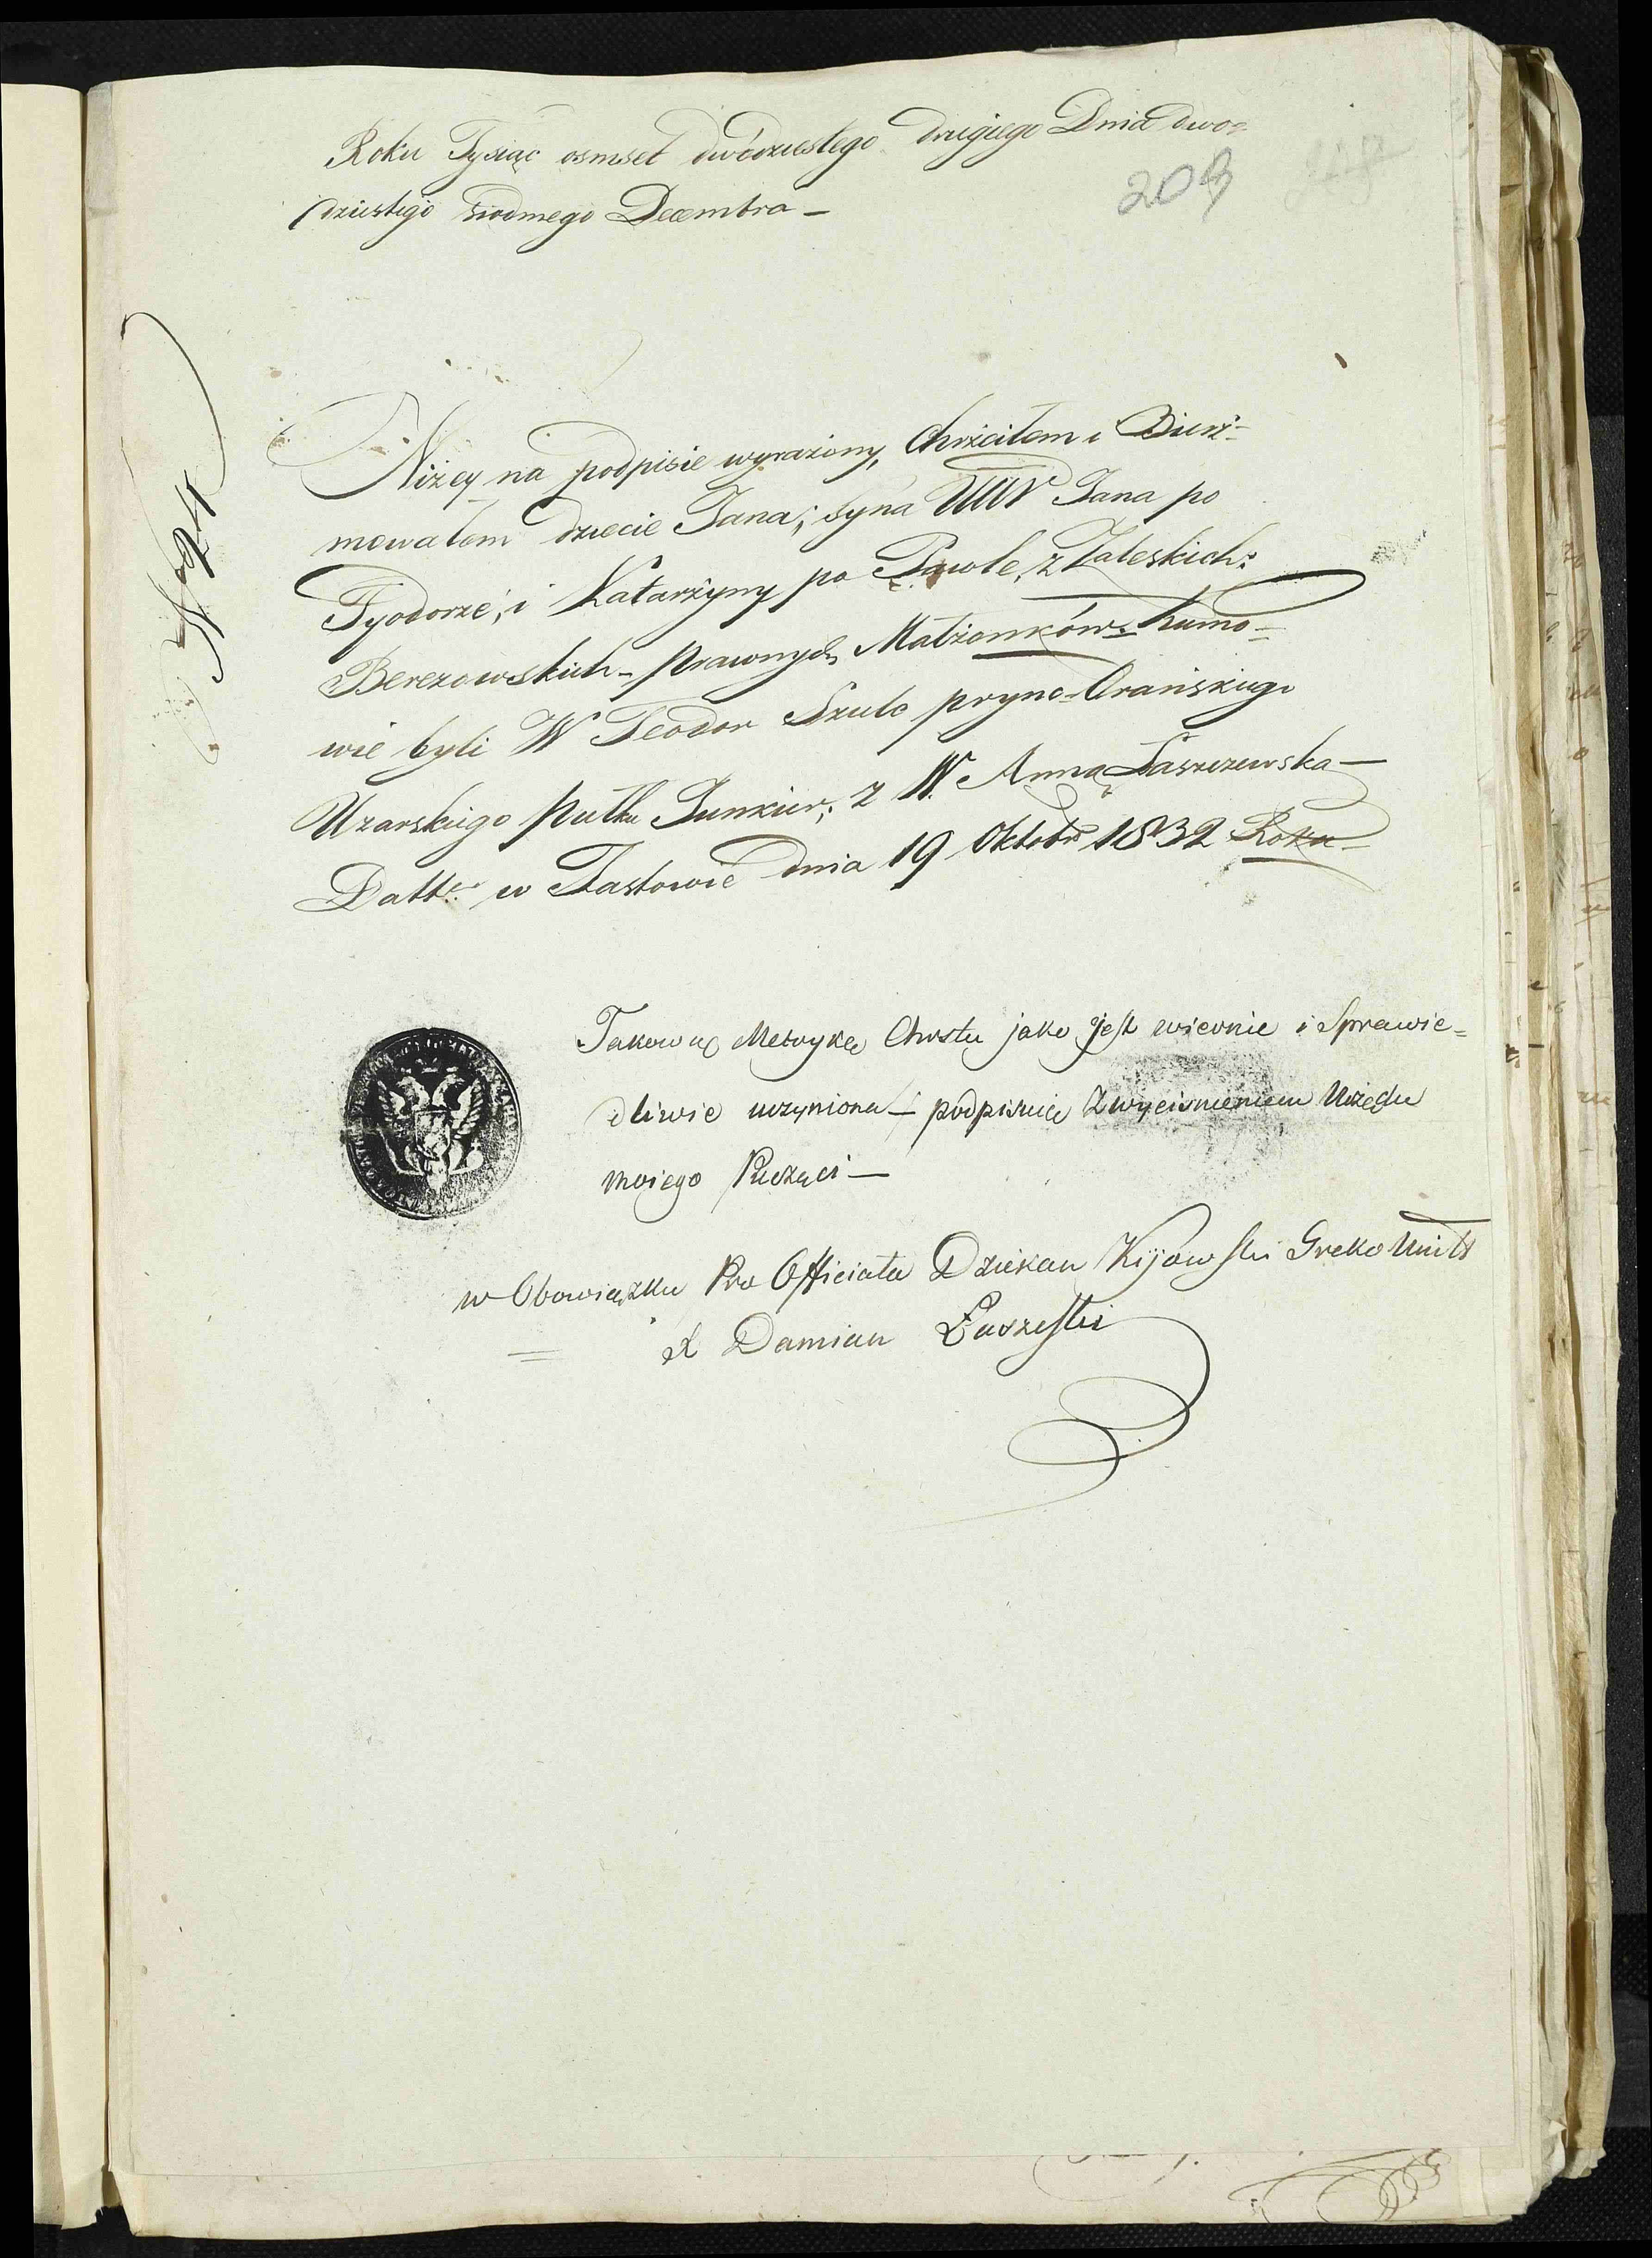 Roku Tysiąc osmset dwódziestego drugiego Dnia dwo=
dziestego siodmego Decembra —
209
N 924
Niżey na podpisie wyrażony, Chrzciłem i Bierż=
mowałem dziecie Jana; syna WW Jana po
Fyodorze, i Katarżyny po Pawle, z Zaleskich:
Berezowskich – prawnych Małżonków: Kumo=
wie byli W Teodor Szulc prync-Orańskiego
Uzarskiego Pułku Junkier; z W. Anną Łaszezewską —
Datt: w Fastowie dnia 19 Oktobr 1832 Roku –
Takową Metrykę Chrstu jako jest wiernie i Sprawie=
dliwie uczyniona – podpisuię z wyciśnieniem Urzędu
moiego Pieczęci —
w Obowiązku Pro Officiała Dziekan Kijowski Greko Unitt
X Damian Łaszeski